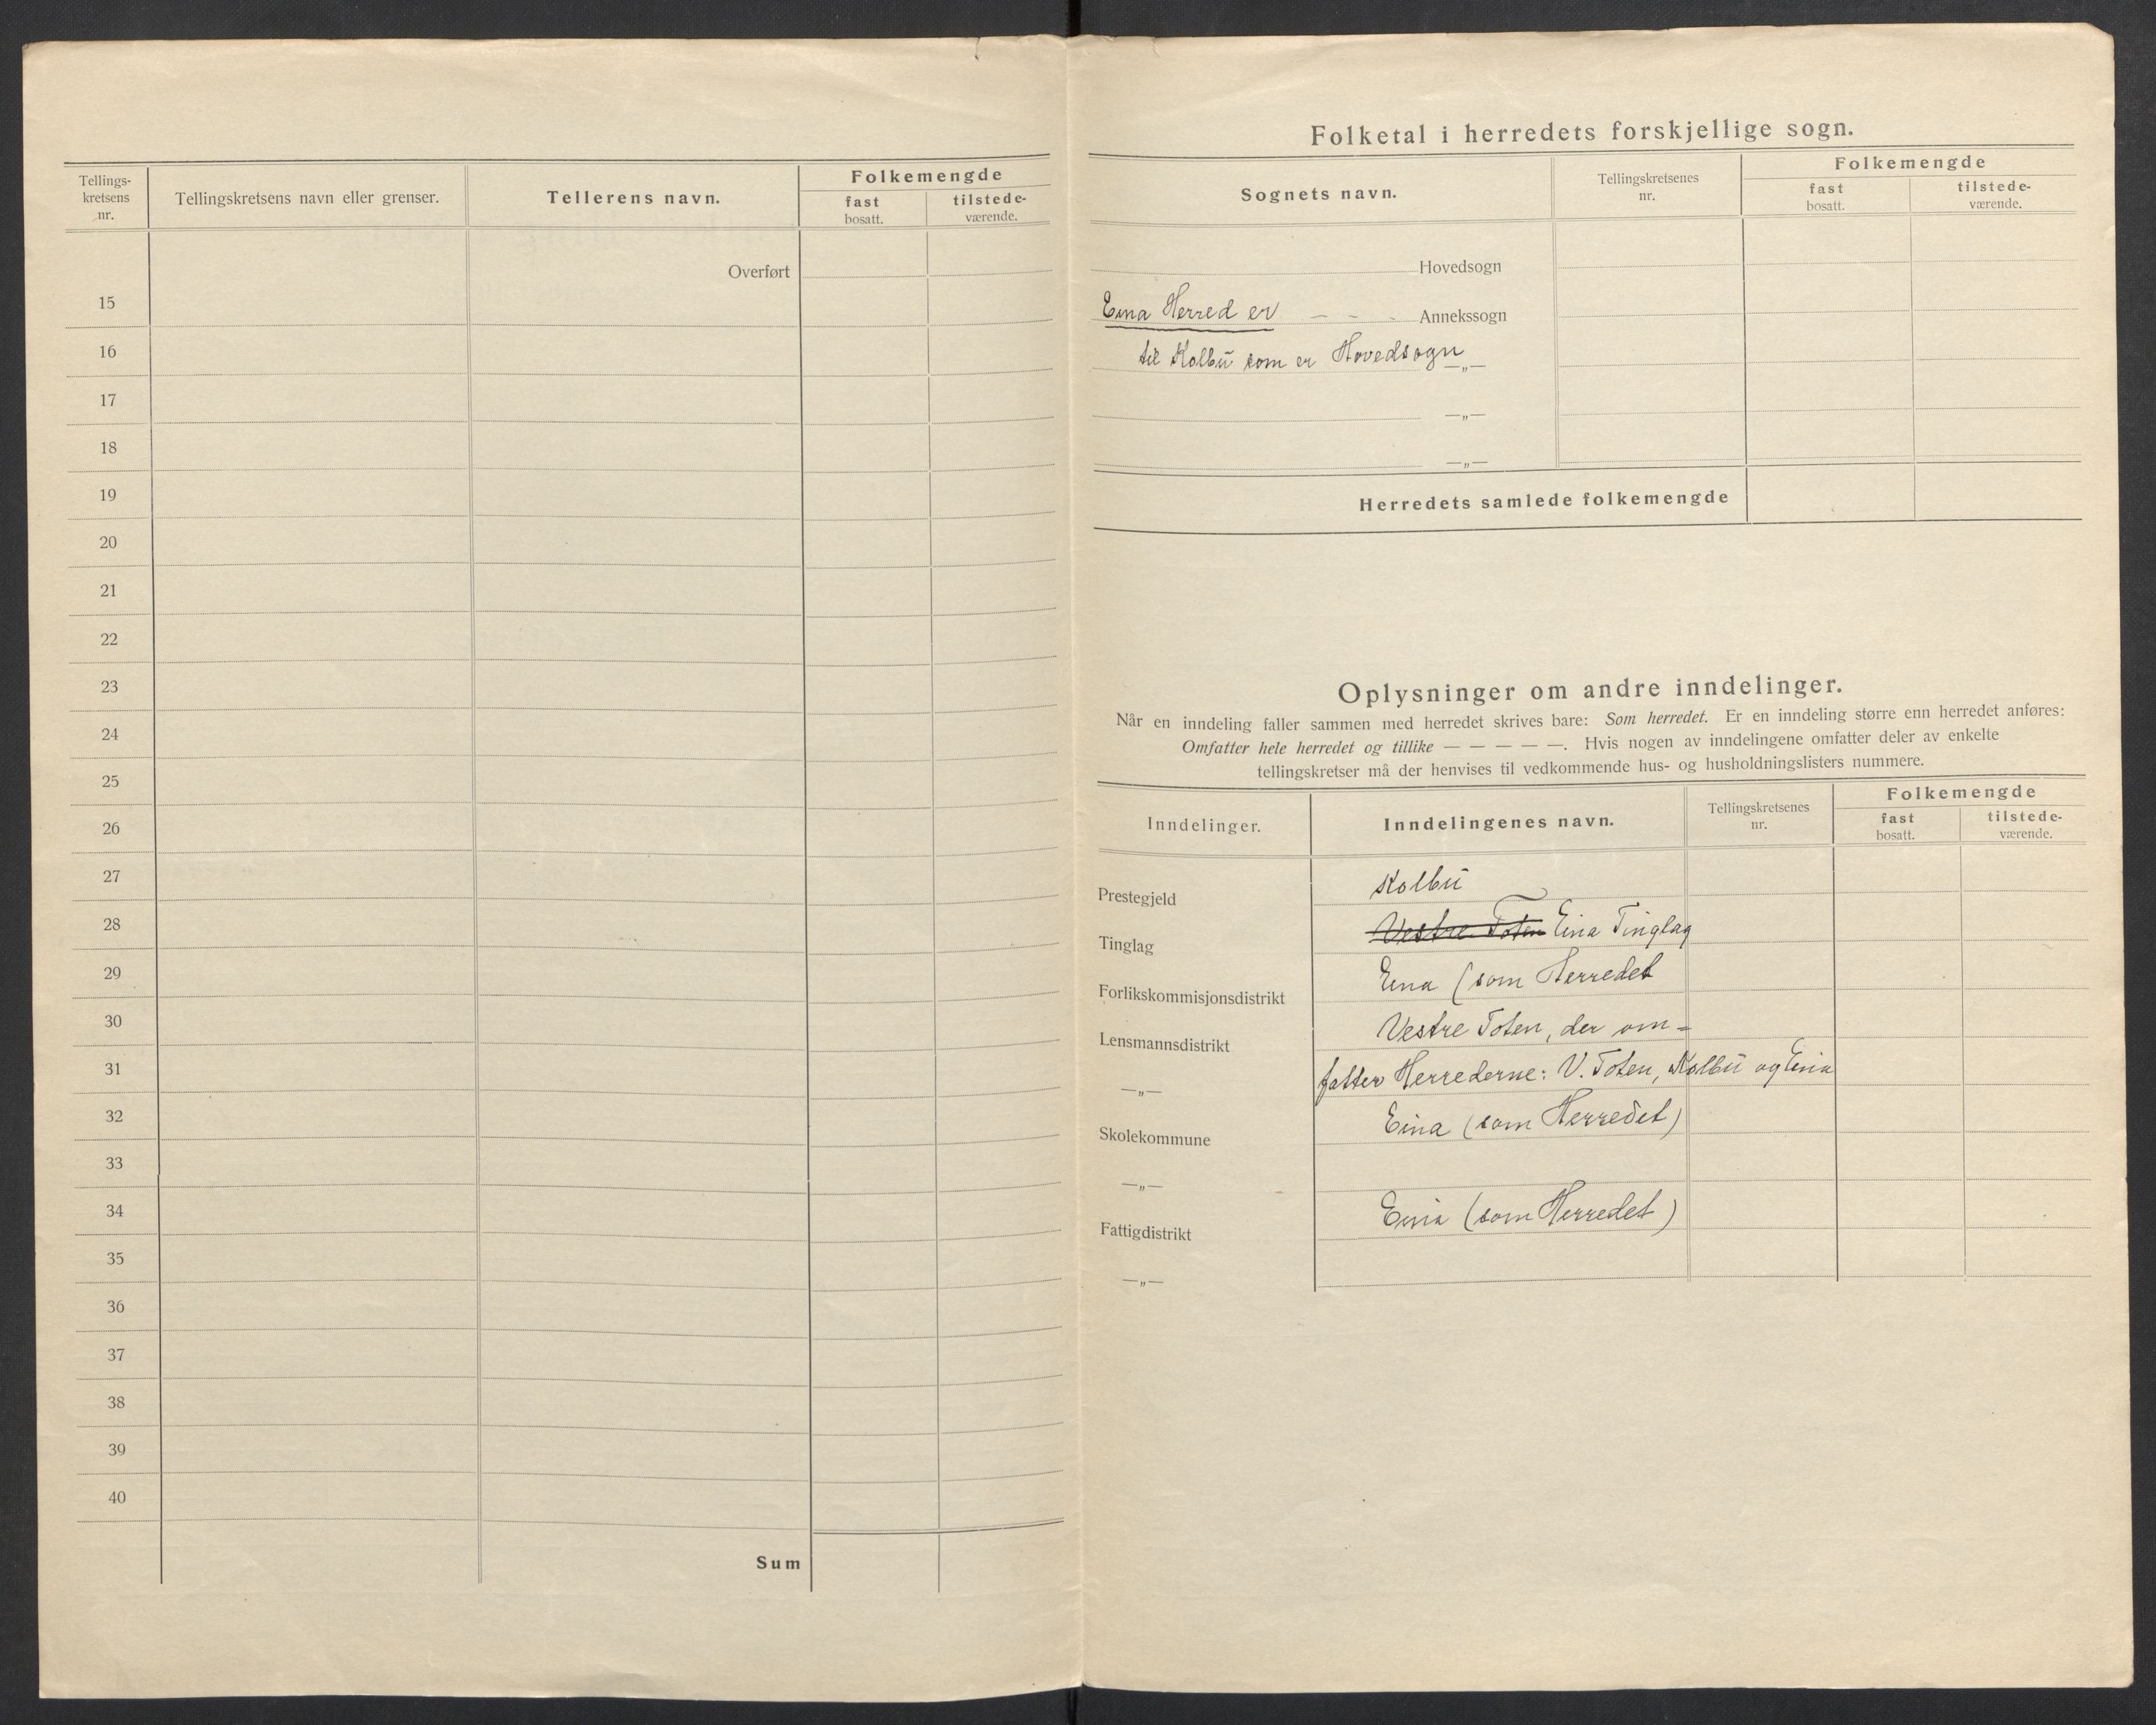 Tellings-
kretsens
nr.
Tellingskretsens navn eller grenser.
Tellerens navn.
Folkemengde
fast
bosatt.
tilstede-
værende.
Overført
15
16
17
18
19
20
21
22
23
24
25
26
27
28
29
30
31
32
33
34
35
36
37
38
39
40
Sum
Folketal i herredets forskjellige sogn.
Sognets navn.
Tellingskretsenes
nr.
Folkemengde
fast
bosatt.
tilstede-
værende.
Hovedsogn
Eina Herred er - - - Annekssogn
til Kolbu som er Hovedsogn —„—
—„—
—„—
Herredets samlede folkemengde
Oplysninger om andre inndelinger.
Når en inndeling faller sammen med herredet skrives bare: Som herredet. Er en inndeling større enn herredet anføres:
Omfatter hele herredet og tillike — — — — —. Hvis nogen av inndelingene omfatter deler av enkelte
tellingskretser må der henvises til vedkommende hus- og husholdningslisters nummere.
Inndelinger.
Inndelingenes navn.
Tellingskretsenes
nr.
Folkemengde
fast
bosatt.
tilstede-
værende.
Prestegjeld Kolbu
Tinglag Vestre Toten Eina Tinglag
Forlikskommisjonsdistrikt Eina (som Herredet
Lensmannsdistrikt Vestre Toten, der om=
—„— fatter Herrederne: V. Toten, Kolbu og Eina
Skolekommune Eina (som Herredet)
—„—
Fattigdistrikt Eina (som Herredet)
—„—